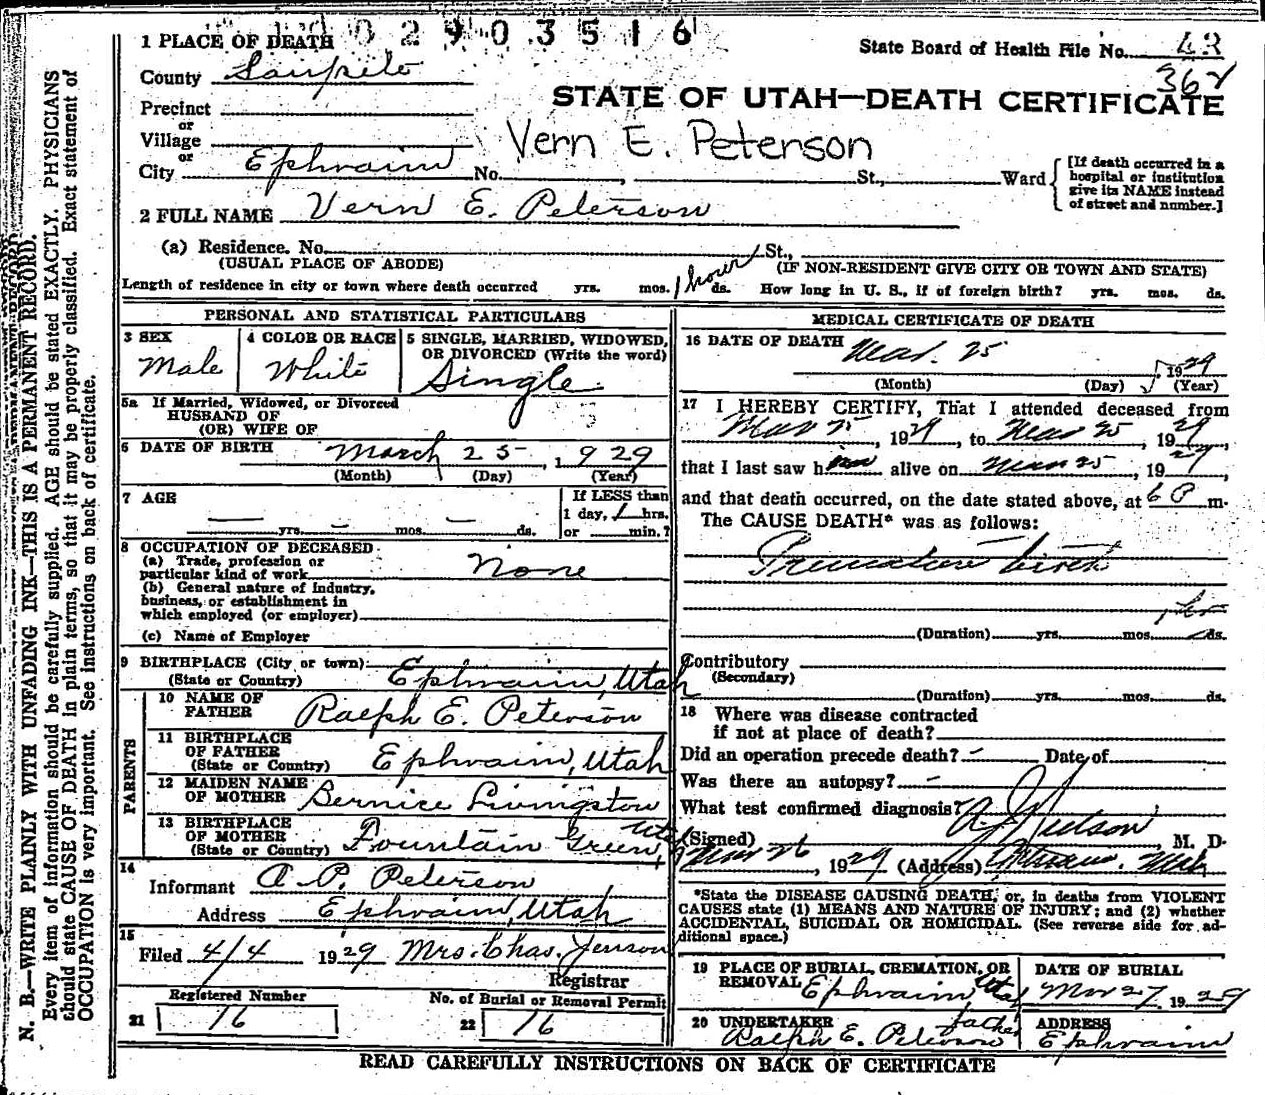 0 2 9 0 3 5 1 6
1 PLACE OF DEATH
State Board of Health File No. 42
County Sanpete
362
STATE OF UTAH—DEATH CERTIFICATE
Precinct
or
Village
Vern E. Peterson
or
City Ephraim No. , St., Ward
[If death occurred in a
hospital or institution
give its NAME instead
of street and number.]
2 FULL NAME Vern E. Peterson
(a) Residence. No. St.,
(USUAL PLACE OF ABODE) (IF NON-RESIDENT GIVE CITY OR TOWN AND STATE)
Length of residence in city or town where death occurred yrs. mos. 1 hour ds. How long in U. S., if of foreign birth? yrs. mos. ds.
PERSONAL AND STATISTICAL PARTICULARS
3 SEX
Male
4 COLOR OR RACE
White
5 SINGLE, MARRIED, WIDOWED,
OR DIVORCED (Write the word)
Single
5a If Married, Widowed, or Divorced
HUSBAND OF
(OR) WIFE OF
6 DATE OF BIRTH March 25, 1929
(Month) (Day) (Year)
7 AGE
— yrs. — mos. — ds.
If LESS than
1 day, 1 hrs.
or min.?
8 OCCUPATION OF DECEASED
(a) Trade, profession or
particular kind of work None
(b) General nature of industry,
business, or establishment in
which employed (or employer)
(c) Name of Employer
9 BIRTHPLACE (City or town)
(State or Country) Ephraim, Utah
PARENTS
10 NAME OF
FATHER Ralph E. Peterson
11 BIRTHPLACE
OF FATHER
(State or Country) Ephraim, Utah
12 MAIDEN NAME
OF MOTHER Bernice Livingston
13 BIRTHPLACE
OF MOTHER
(State or Country) Fountain Green, Utah
14
Informant A. P. Peterson
Address Ephraim, Utah
15
Filed 4/4 1929 Mrs. Chas. Jenson
Registrar
Registered Number
21 16
No. of Burial or Removal Permit
22 16
MEDICAL CERTIFICATE OF DEATH
16 DATE OF DEATH Mar. 25 1929
(Month) (Day) (Year)
17 I HEREBY CERTIFY, That I attended deceased from
Mar 25, 1929, to Mar 25, 1929,
that I last saw him alive on Mar 25, 1929,
and that death occurred, on the date stated above, at 6 P m.
The CAUSE DEATH* was as follows:
Premature birth
1 hr
(Duration) yrs. mos. ds.
Contributory
(Secondary)
(Duration) yrs. mos. ds.
18 Where was disease contracted
if not at place of death?
Did an operation precede death? — Date of
Was there an autopsy? —
What test confirmed diagnosis?
(Signed) , M. D.
Mar 26, 1929 (Address) Ephraim. Utah
*State the DISEASE CAUSING DEATH, or, in deaths from VIOLENT
CAUSES state (1) MEANS AND NATURE OF INJURY; and (2) whether
ACCIDENTAL, SUICIDAL OR HOMICIDAL. (See reverse side for ad-
ditional space.)
19 PLACE OF BURIAL, CREMATION, OR
REMOVAL Ephraim, Utah
DATE OF BURIAL
Mar 27, 1929
20 UNDERTAKER father
Ralph E. Peterson
ADDRESS
Ephraim
READ CAREFULLY INSTRUCTIONS ON BACK OF CERTIFICATE
N. B.—WRITE PLAINLY WITH UNFADING INK—THIS IS A PERMANENT RECORD.
Every item of information should be carefully supplied. AGE should be stated EXACTLY. PHYSICIANS
should state CAUSE OF DEATH in plain terms, so that it may be properly classified. Exact statement of
OCCUPATION is very important. See instructions on back of certificate.